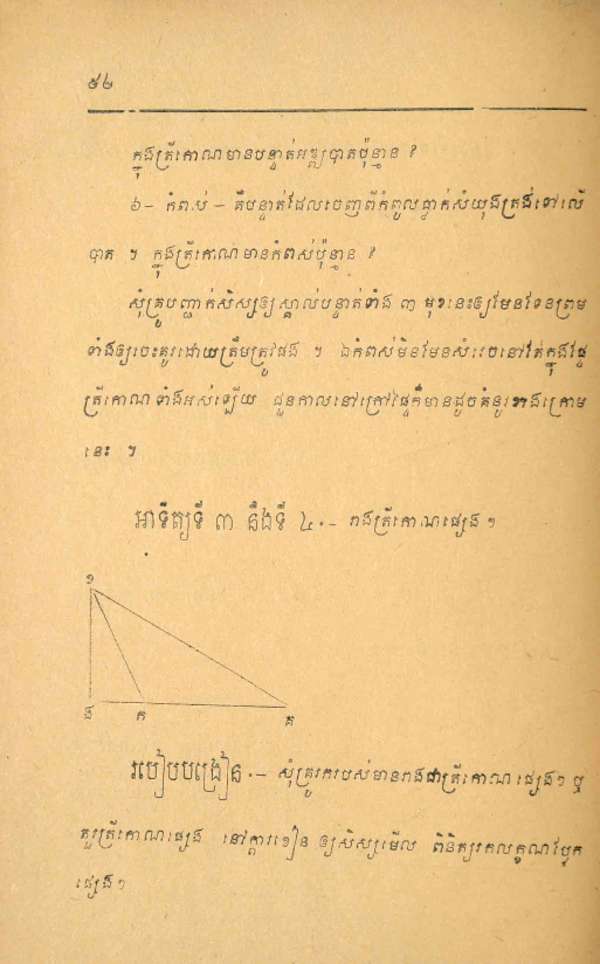 ៥៤
ក្នុងត្រីកោណមានបន្ទាត់អឌ្ឍបាតប៉ុន្មាន ?
៦- កំពស់ - គឺបន្ទាត់ដែលចេញពីកំពូលធ្លាក់សំយុងត្រង់ទៅលើ
បាត ។ ក្នុងត្រីកោណមានកំពស់ប៉ុន្មាន ?
សុំគ្រូបញ្ជាក់សិស្សឲ្យស្គាល់បន្ទាត់ទាំង ៣ មុខនេះឲ្យមែនទែនព្រម
ទាំងឲ្យចេះគូរដោយត្រឹមត្រូវផង ។ ឯកំពស់មិនមែនសំរេចនៅតែក្នុងផ្ទៃ
ត្រីកោណទាំងអស់ឡើយ ជួនកាលនៅក្រៅផ្ទៃក៏មានដូចគំនូរខាងក្រោម
នេះ ។
អាទិត្យទី ៣ និងទី ៤.- រាងត្រីកោណផ្សេងៗ
ខ
ង ក គ
របៀបបង្រៀន.- សុំគ្រូរករបស់មានរាងជាត្រីកោណផ្សេងៗ ឬ
គូរត្រីកោណផ្សេង នៅក្តារខៀន ឲ្យសិស្សមើល ពិនិត្យរកលក្ខណប្លែក
ផ្សេងៗ